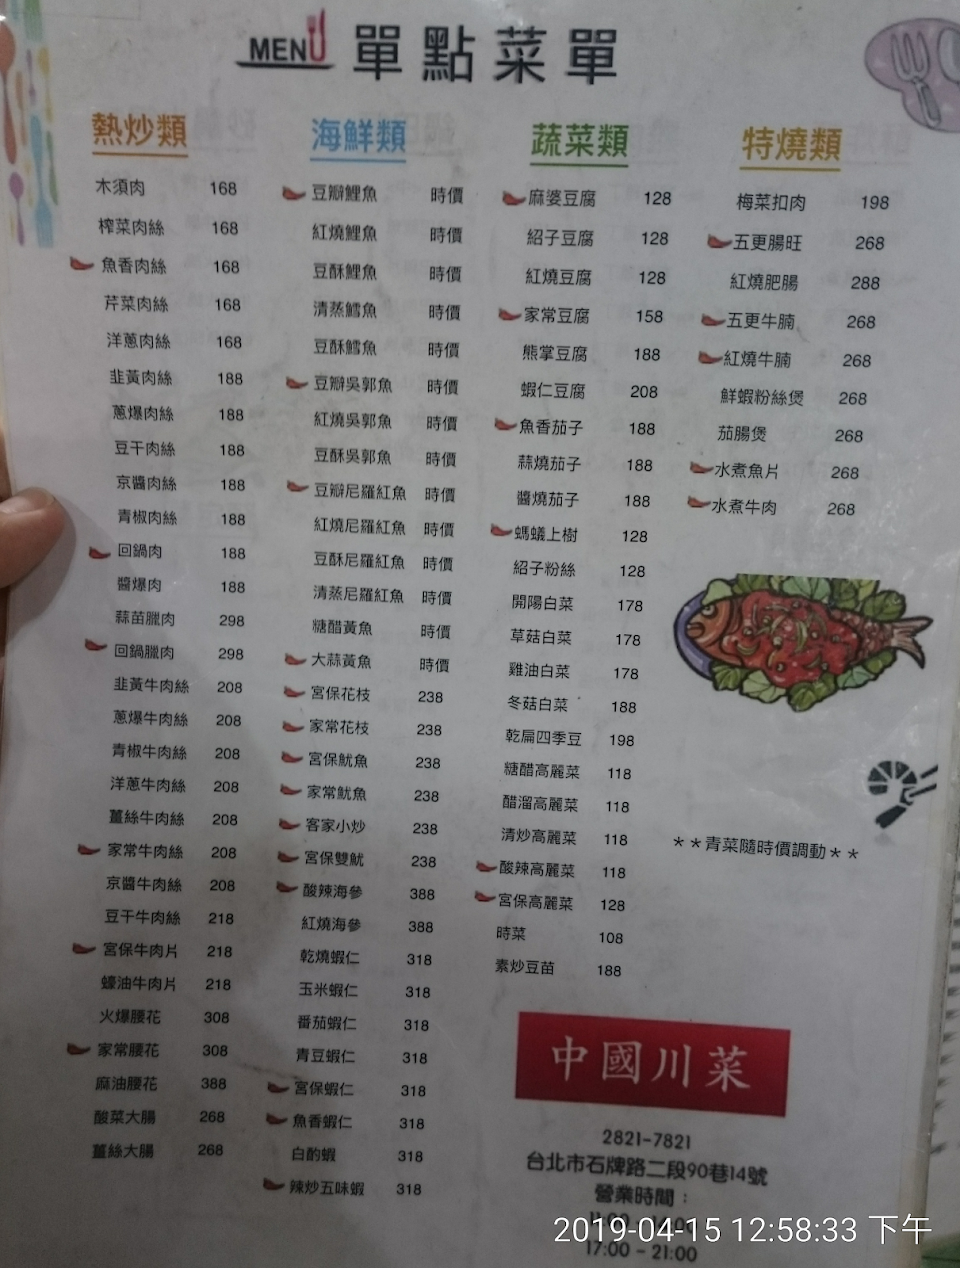 MENU 單點菜單
熱炒類
木須肉 168
榨菜肉絲 168
魚香肉絲 168
芹菜肉絲 168
洋蔥肉絲 168
韭黃肉絲 188
蔥爆肉絲 188
豆干肉絲 188
京醬肉絲 188
青椒肉絲 188
回鍋肉 188
醬爆肉 188
蒜苗臘肉 298
回鍋臘肉 298
韭黃牛肉絲 208
蔥爆牛肉絲 208
青椒牛肉絲 208
洋蔥牛肉絲 208
薑絲牛肉絲 208
家常牛肉絲 208
京醬牛肉絲 208
豆干牛肉絲 218
宮保牛肉片 218
蠔油牛肉片 218
火爆腰花 308
家常腰花 308
麻油腰花 388
酸菜大腸 268
薑絲大腸 268
海鮮類
豆瓣鯉魚 時價
紅燒鯉魚 時價
豆酥鯉魚 時價
清蒸鱈魚 時價
豆酥鱈魚 時價
豆瓣吳郭魚 時價
紅燒吳郭魚 時價
豆酥吳郭魚 時價
豆瓣尼羅紅魚 時價
紅燒尼羅紅魚 時價
豆酥尼羅紅魚 時價
清蒸尼羅紅魚 時價
糖醋黃魚 時價
大蒜黃魚 時價
宮保花枝 238
家常花枝 238
宮保魷魚 238
家常魷魚 238
客家小炒 238
宮保雙魷 238
酸辣海參 388
紅燒海參 388
乾燒蝦仁 318
玉米蝦仁 318
番茄蝦仁 318
青豆蝦仁 318
宮保蝦仁 318
魚香蝦仁 318
白酌蝦 318
辣炒五味蝦 318
蔬菜類
麻婆豆腐 128
紹子豆腐 128
紅燒豆腐 128
家常豆腐 158
熊掌豆腐 188
蝦仁豆腐 208
魚香茄子 188
蒜燒茄子 188
醬燒茄子 188
螞蟻上樹 128
紹子粉絲 128
開陽白菜 178
草菇白菜 178
雞油白菜 178
冬菇白菜 188
乾扁四季豆 198
糖醋高麗菜 118
醋溜高麗菜 118
清炒高麗菜 118
酸辣高麗菜 118
宮保高麗菜 128
時菜 108
素炒豆苗 188
特燒類
梅菜扣肉 198
五更腸旺 268
紅燒肥腸 288
五更牛腩 268
紅燒牛腩 268
鮮蝦粉絲煲 268
茄腸煲 268
水煮魚片 268
水煮牛肉 268
**青菜隨時價調動**
中國川菜
2821-7821
台北市石牌路二段90巷14號
營業時間：
17:00 - 21:00
2019-04-15 12:58:33 下午